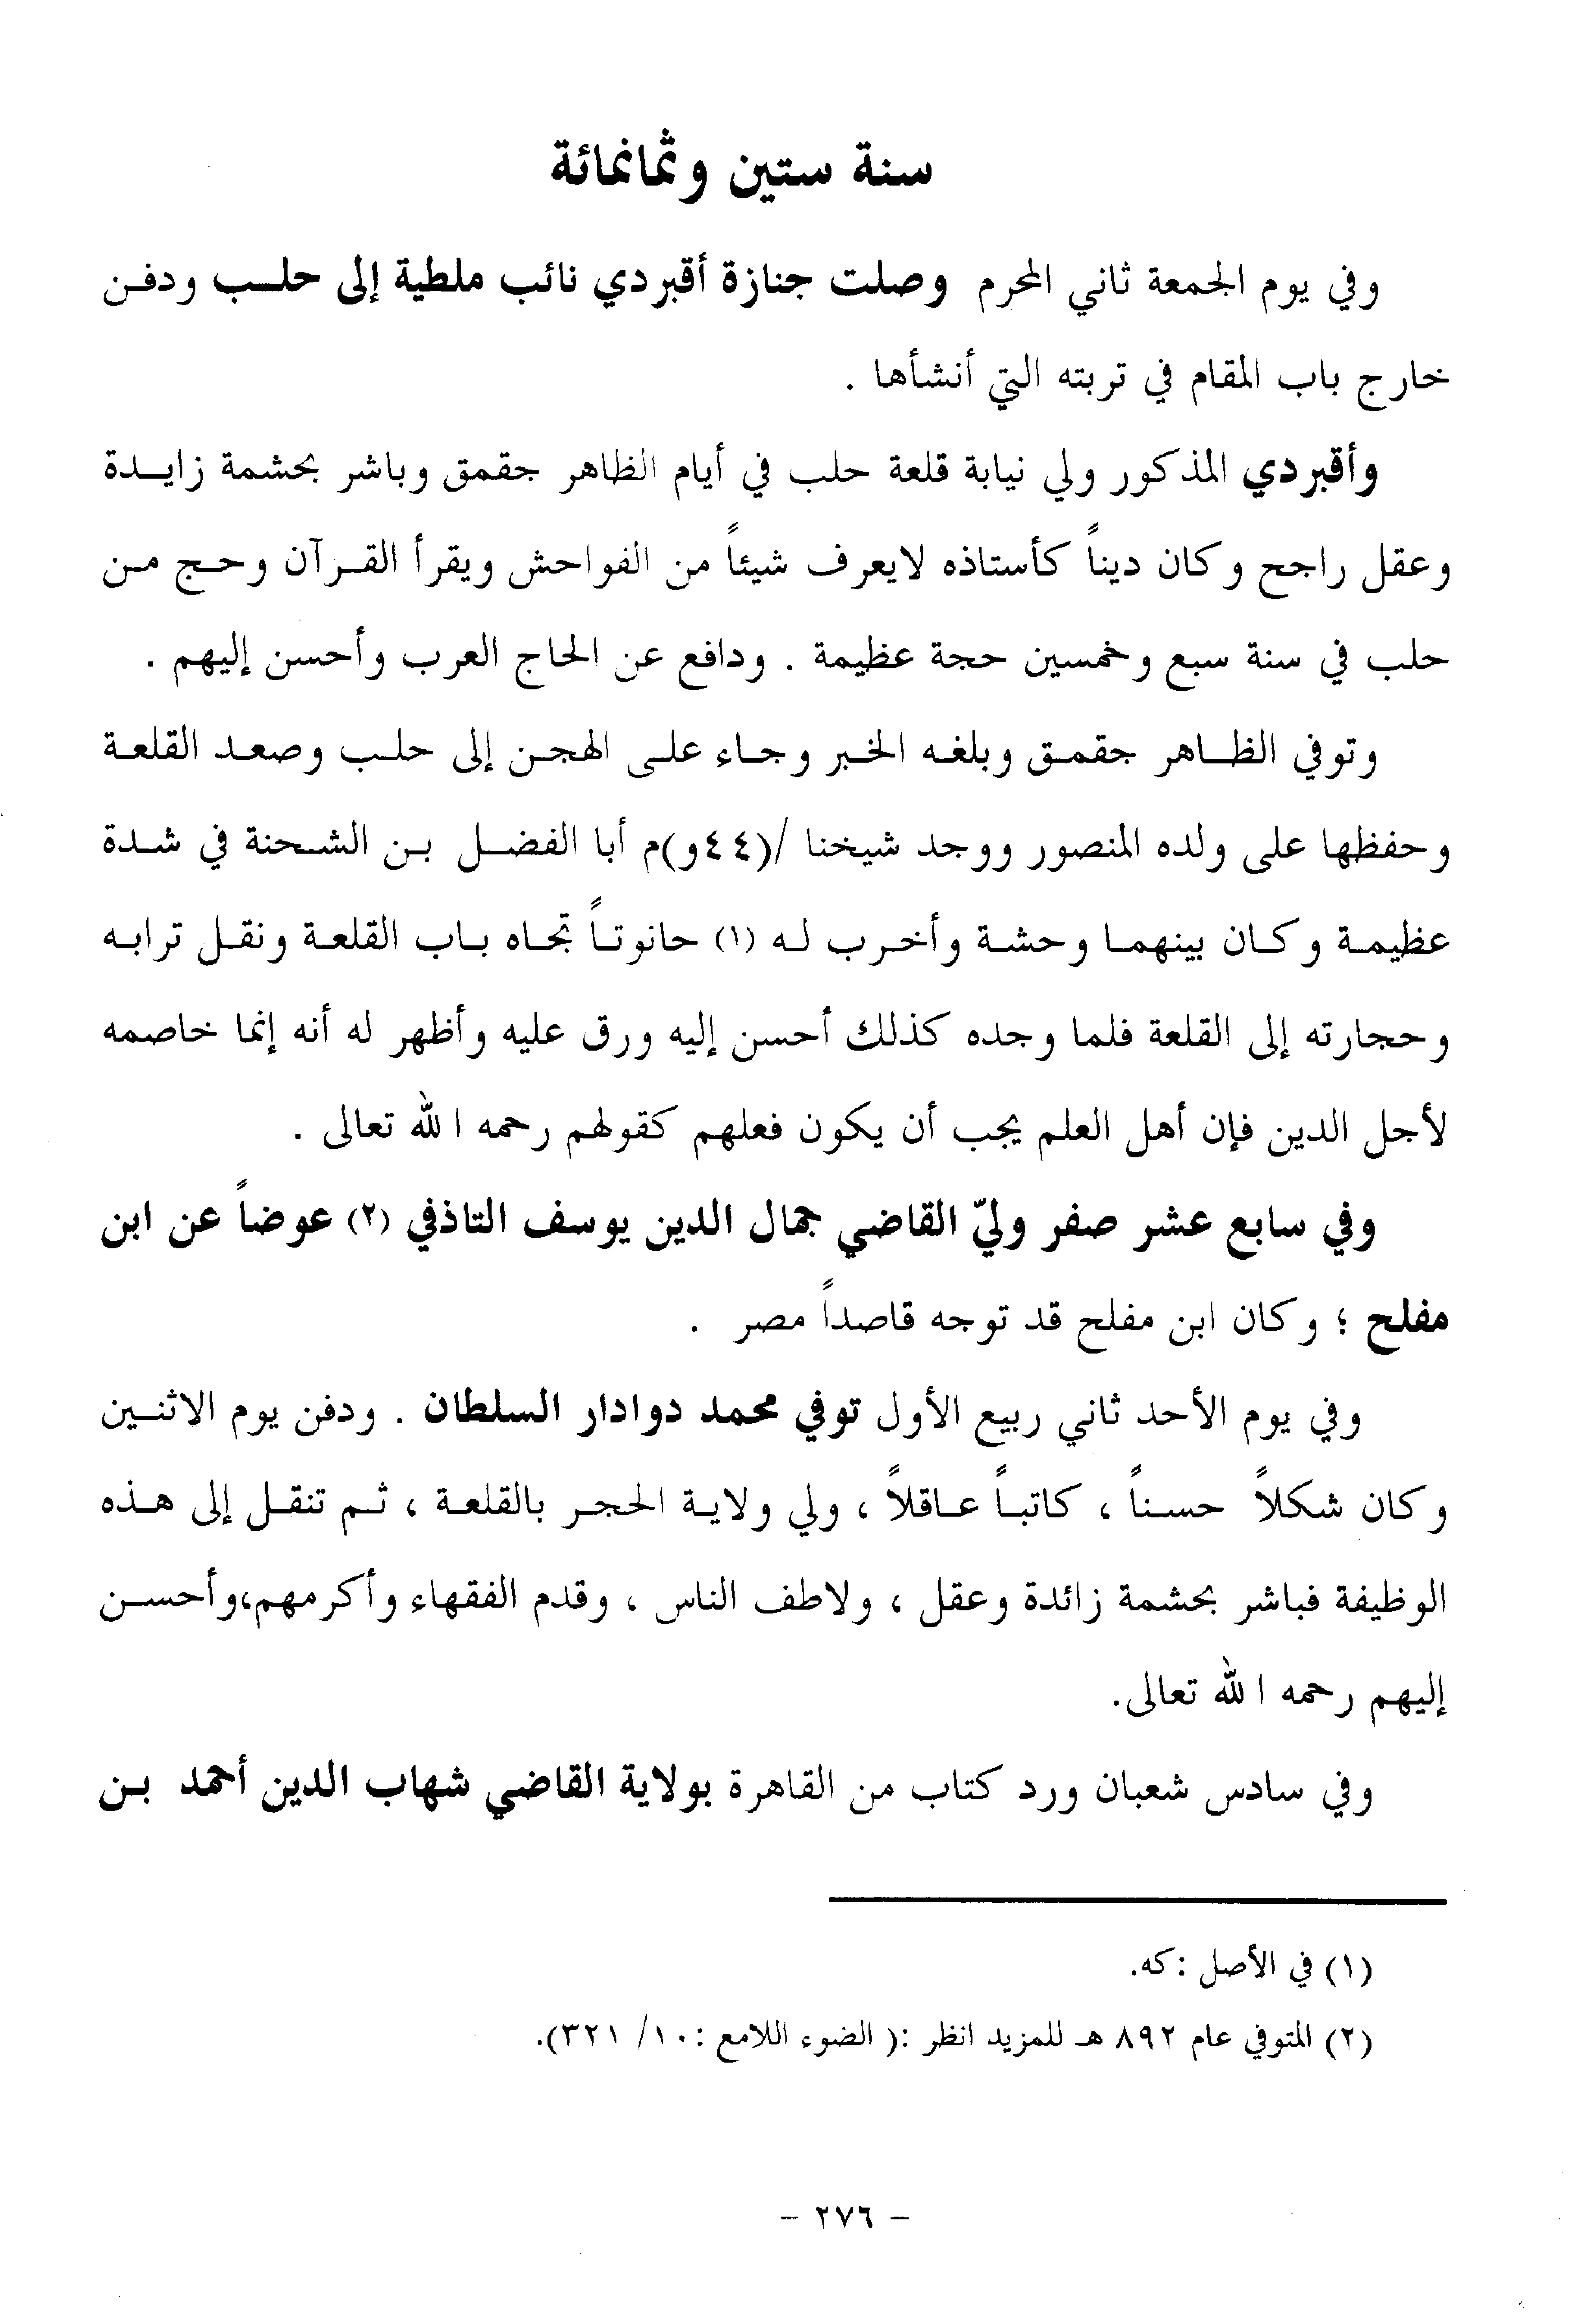 سنة ستين وثمانمائة
وفي يوم الجمعة ثاني المحرم وصلت جنازة أقبردي نائب ملطية إلى حلب ودفن
خارج باب المقام في تربته التي أنشأها .
وأقبردي المذكور ولي نيابة قلعة حلب في أيام الظاهر جقمق وباشر بحشمة زايدة
وعقل راجح وكان ديناً كأستاذه لايعرف شيئاً من الفواحش ويقرأ القرآن وحج من
حلب في سنة سبع وخمسين حجة عظيمة . ودافع عن الحاج العرب وأحسن إليهم .
وتوفي الظاهر جقمق وبلغه الخبر وجاء على الهجن إلى حلب وصعد القلعة
وحفظها على ولده المنصور ووجد شيخنا /(٤٤و)م أبا الفضل بن الشحنة في شدة
عظيمة وكان بينهما وحشة وأخرب له (١) حانوتاً تجاه باب القلعة ونقل ترابه
وحجارته إلى القلعة فلما وجده كذلك أحسن إليه ورق عليه وأظهر له أنه إنما خاصمه
لأجل الدين فإن أهل العلم يجب أن يكون فعلهم كقولهم رحمه الله تعالى .
وفي سابع عشر صفر وليّ القاضي جمال الدين يوسف التاذفي (٢) عوضاً عن ابن
مفلح ؛ وكان ابن مفلح قد توجه قاصداً مصر .
وفي يوم الأحد ثاني ربيع الأول توفي محمد دوادار السلطان . ودفن يوم الاثنين
وكان شكلاً حسناً ، كاتباً عاقلاً ، ولي ولاية الحجر بالقلعة ، ثم تنقل إلى هذه
الوظيفة فباشر بحشمة زائدة وعقل ، ولاطف الناس ، وقدم الفقهاء وأكرمهم،وأحسن
إليهم رحمه الله تعالى.
وفي سادس شعبان ورد كتاب من القاهرة بولاية القاضي شهاب الدين أحمد بن
(١) في الأصل :كه.
(٢) المتوفي عام ٨٩٢ هـ للمزيد انظر :( الضوء اللامع :١٠/ ٣٢١).
- ٢٧٦ -